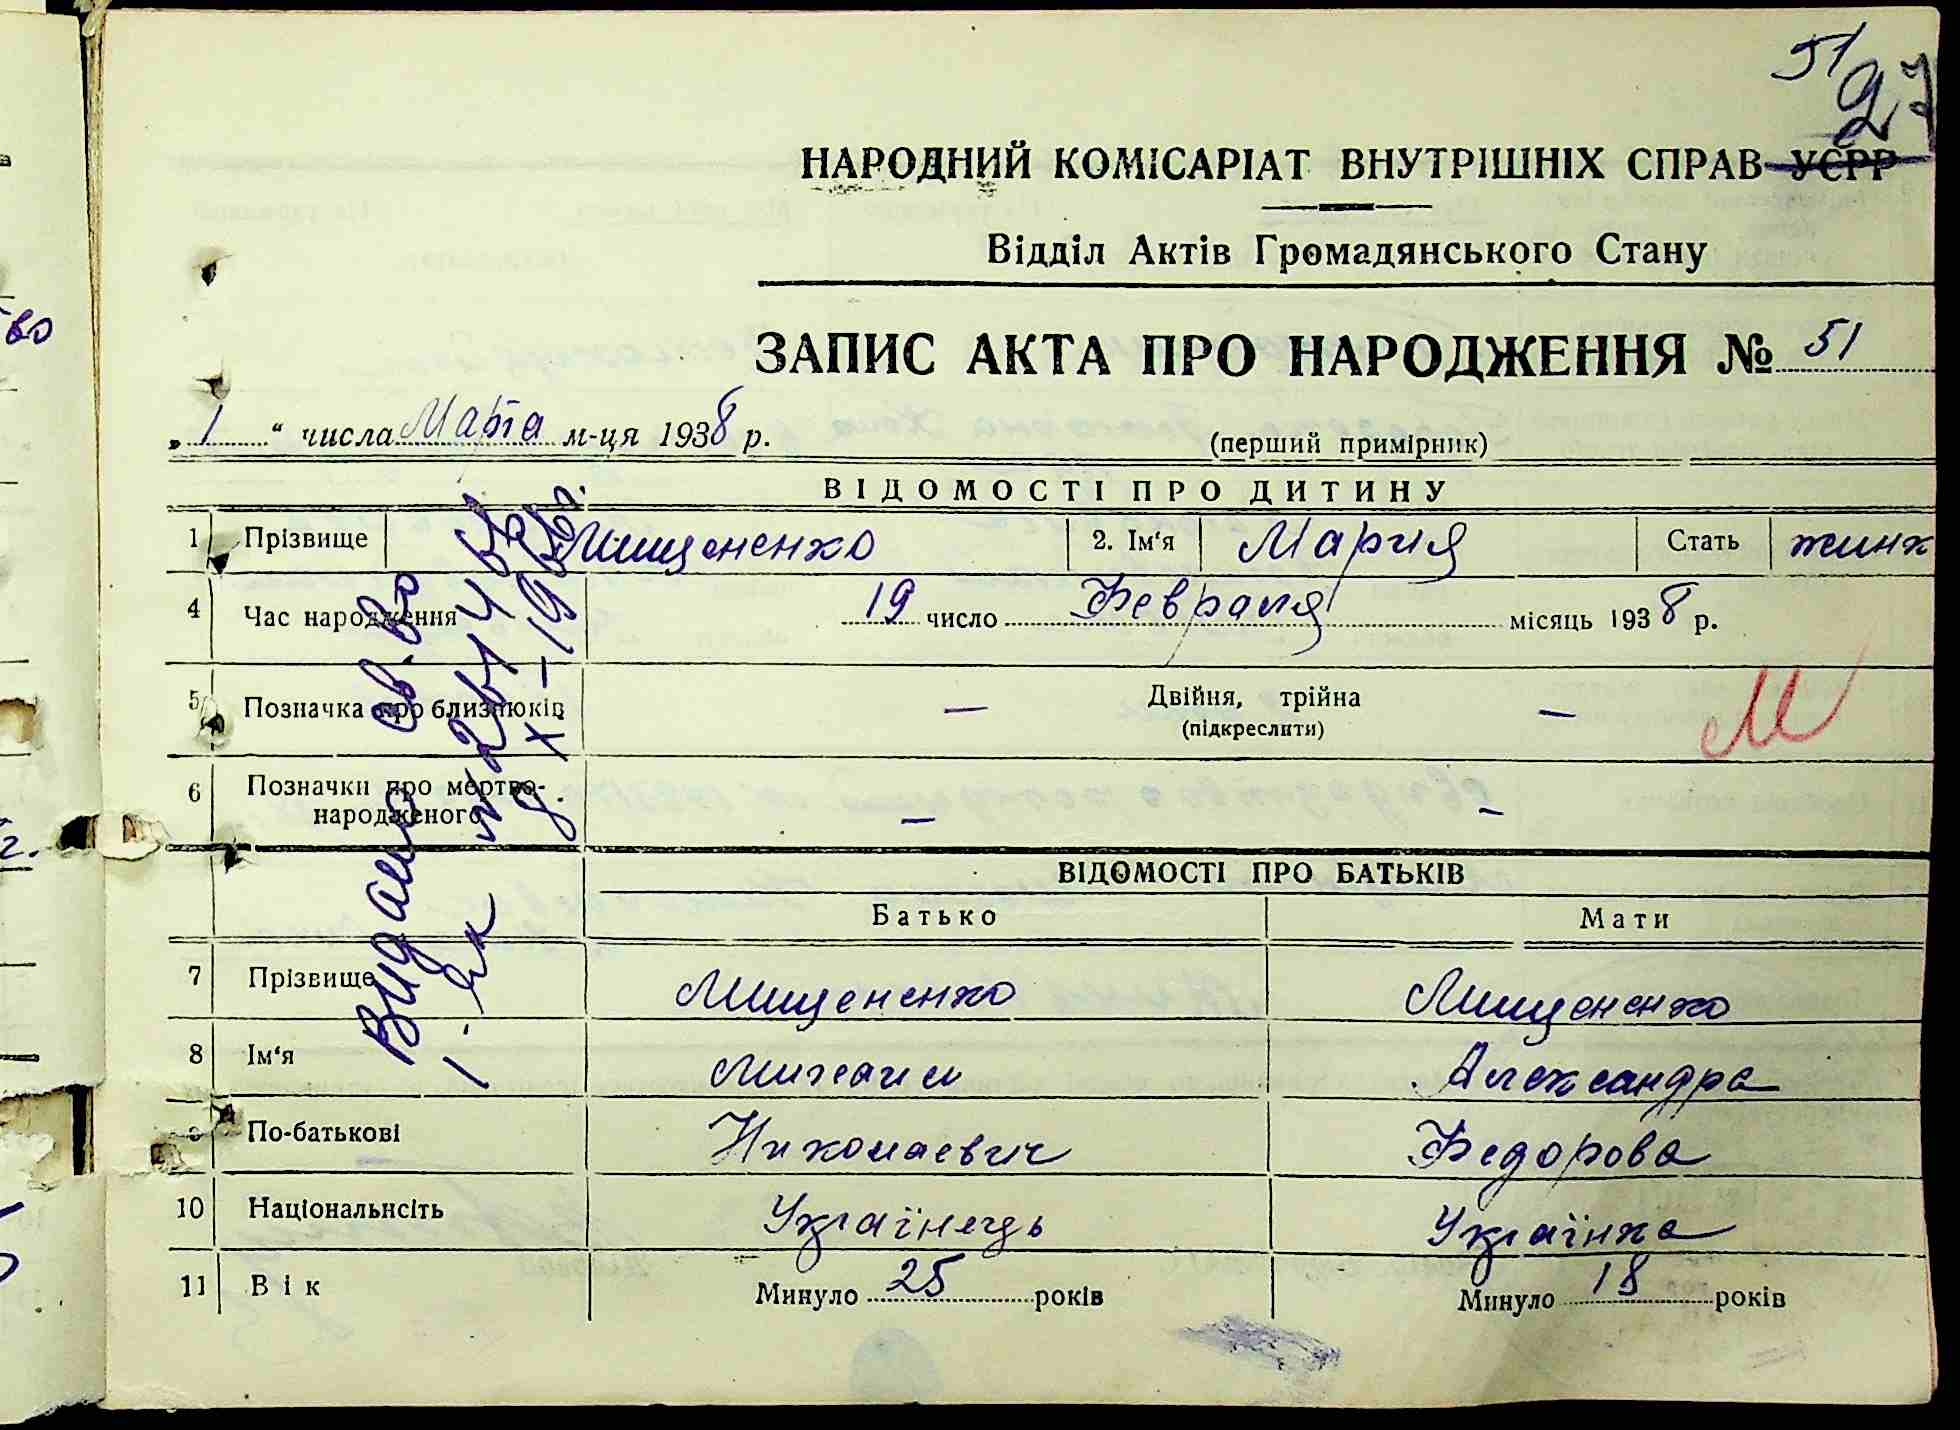 51
27
НАРОДНИЙ КОМІСАРІАТ ВНУТРІШНІХ СПРАВ УСРР
Відділ Актів Громадянського Стану
ЗАПИС АКТА ПРО НАРОДЖЕННЯ № 51
„ 1 “ числа Марта м-ця 1938 р.
(перший примірник)
ВІДОМОСТІ ПРО ДИТИНУ
1 Прізвище Мищененко 2. Ім‘я Мария Стать жинк
4 Час народження 19 число Февраля місяць 1938 р.
5 Позначка про близнюків — Двійня, трійна —
(підкреслити)
М
6 Позначки про мертво-
народженого — —
ВІДОМОСТІ ПРО БАТЬКІВ
Батько Мати
7 Прізвище Мищененко Мищененко
8 Ім‘я Михаил Александра
9 По-батькові Николаевич Федорова
10 Національнсіть Українець Українка
11 Вік Минуло 25 років Минуло 18 років
Видано св-во
во
г.